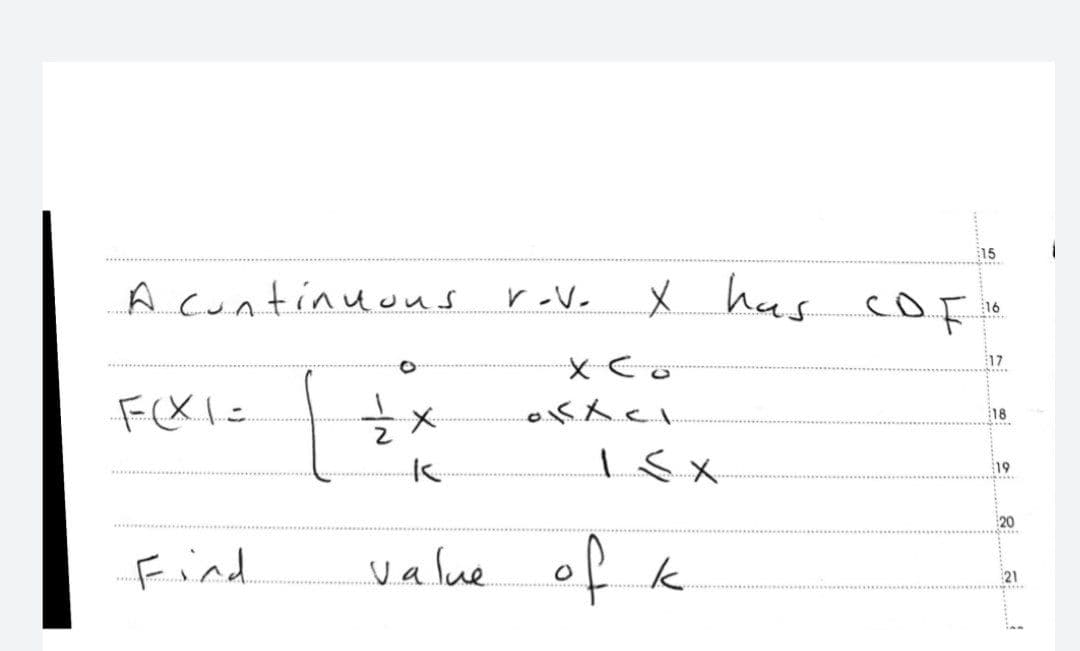 15
A continuous r.v. X has CDF 16
0 x<0 17
F(X)= ½x 0≤x<1 18
k 1≤x 19
20
Find value of k 21